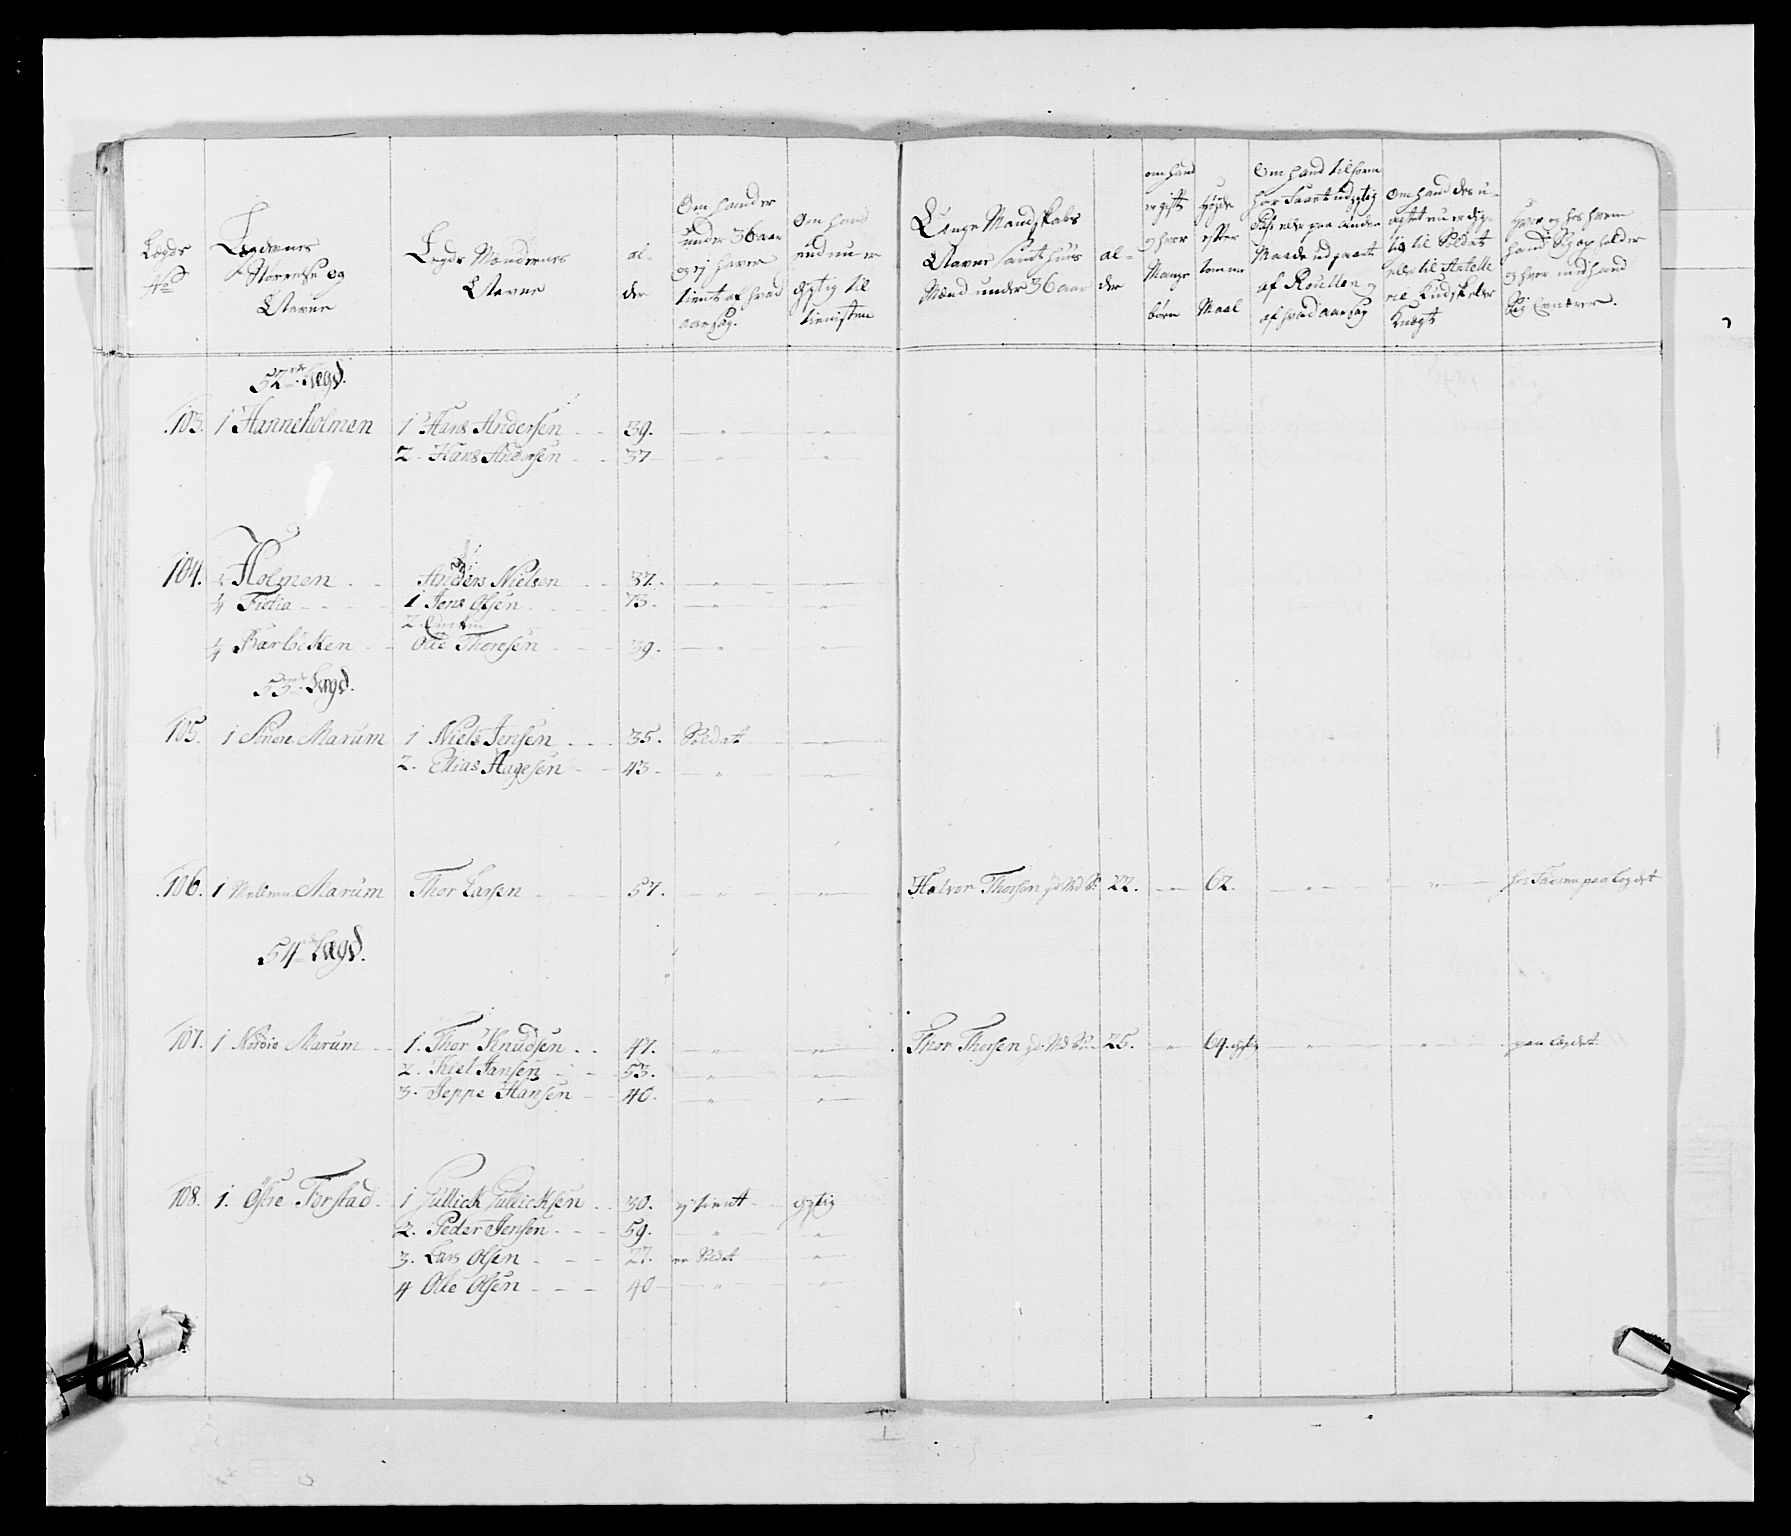 Lægds No
Gaardenes Størrelse og Navne
Lægds Mændernes Navne
al-
der
Om hand er
under 36 aar
og ej haver
tient af hvad
aarsag.
Om hand
end nu er
dygtig til
tienisten
Unge Mandskabs
Navne samt huus
Mænd under 36 aar
al-
der
om hand
er gift
og hvor
Mange
børn
Højde
efter
tomme
Maal
Om hand tilforn
har faaet udygtig
Pas eller paa anden
Maade udgaaet
af Roullen og
af hvad aarsag
Om hand des u-
agtet nu er dyg-
tig til Soldat
eller til Artelle
rie Kudsk eller
Knegt
Hvor og hos hvem
hand Sig opholder
og hvor med hand
Sig Ernærer.
52de Lægd.
103. 1 Hanneholmen 1 Hans Andersen 39.
2. Hans Andersen 37
104. Holmen Anders Nielsen 37.
1/4 Fidia 1 Jens Olsen 73.
2.
1/4 Barløcken Olle Thoresen 39.
53de Lægd.
105. 1 Marum 1 Niels Jensen 35. Soldat
2. Ellias Aagesen 43
106. 1 Mellem Marum Thor Larsen 57. Halvor Thorsen 22. 62. hos Faderen paa Lægdet
54 Lægd.
107. 1 Nordre Marum 1. Thor Knudsen 47. Thor Thorsen 25. 64. dygtig paa Lægdet
2. Kiel Jansen 53.
3. Jeppe Hansen 40.
108. 1. Østre Torstad 1 Gullick Gullicksen 30. ej tient dygtig
2. Peder Jensen 59.
3. Lars Olsen 27. er Soldat
4 Olle Olsen 40